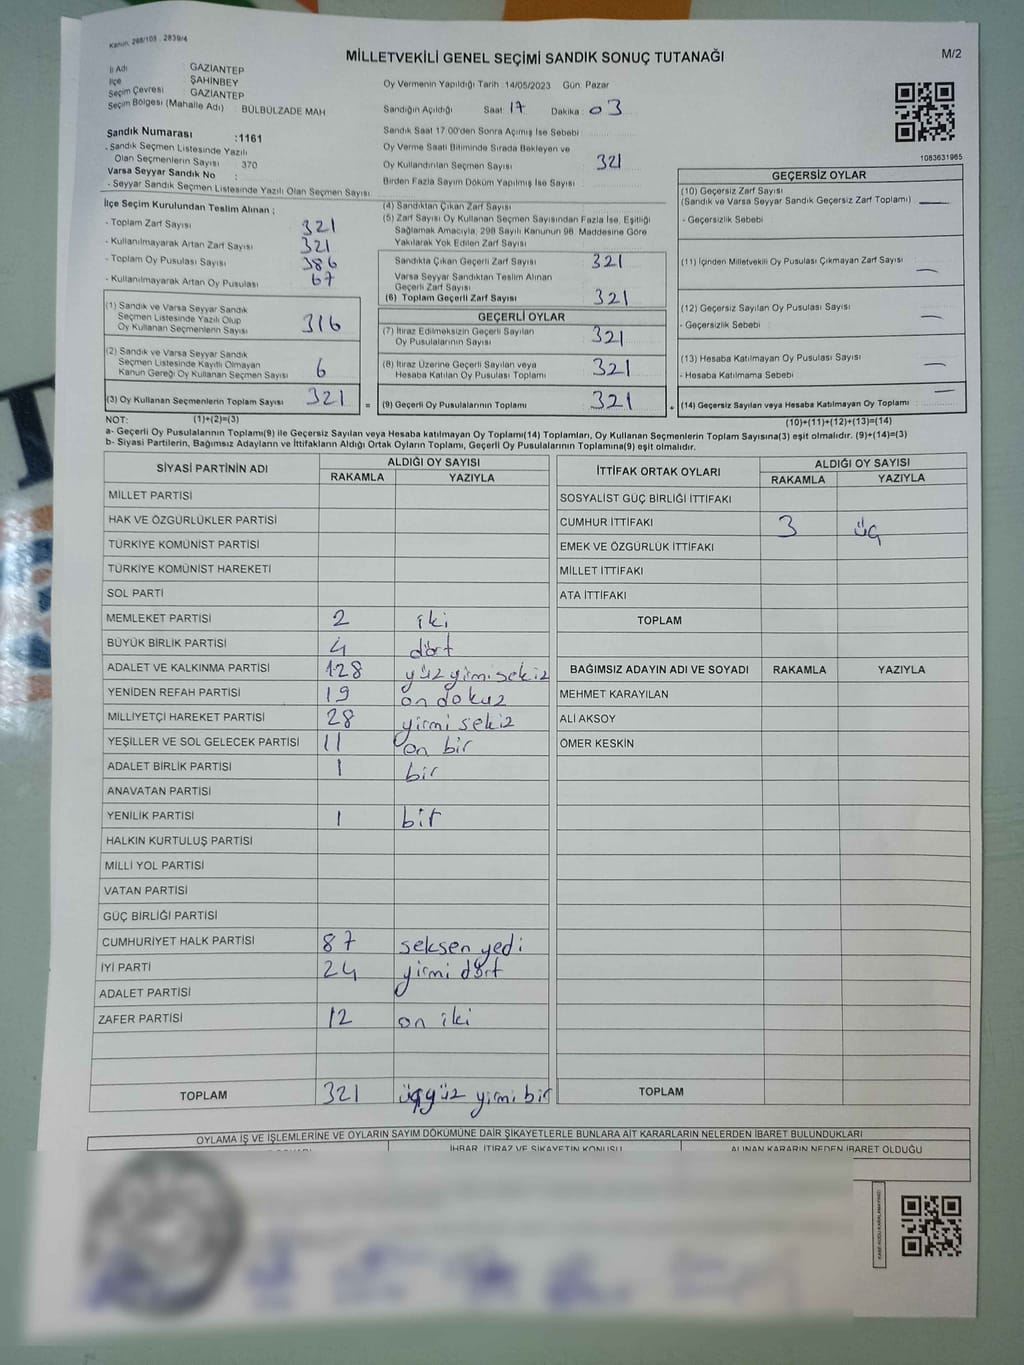 Kanun. 298/105 . 2839/4
MİLLETVEKİLİ GENEL SEÇİMİ SANDIK SONUÇ TUTANAĞI
M/2
İl Adı : GAZİANTEP
İlçe : ŞAHİNBEY
Seçim Çevresi : GAZİANTEP
Seçim Bölgesi (Mahalle Adı) : BÜLBÜLZADE MAH
Oy Vermenin Yapıldığı Tarih :14/05/2023 Gün: Pazar
Sandığın Açıldığı Saat: 17 Dakika: 03
Sandık Saat 17.00'den Sonra Açılmış İse Sebebi
Oy Verme Saati Bitiminde Sırada Bekleyen ve
Oy Kullandırılan Seçmen Sayısı 321
Birden Fazla Sayım Döküm Yapılmış İse Sayısı
1083631965
Sandık Numarası :1161
- Sandık Seçmen Listesinde Yazılı
Olan Seçmenlerin Sayısı 370
Varsa Seyyar Sandık No :
- Seyyar Sandık Seçmen Listesinde Yazılı Olan Seçmen Sayısı
İlçe Seçim Kurulundan Teslim Alınan ;
- Toplam Zarf Sayısı 321
- Kullanılmayarak Artan Zarf Sayısı 321
- Toplam Oy Pusulası Sayısı 386
- Kullanılmayarak Artan Oy Pusulası 67
(1) Sandık ve Varsa Seyyar Sandık
Seçmen Listesinde Yazılı Olup
Oy Kullanan Seçmenlerin Sayısı 316
(2) Sandık ve Varsa Seyyar Sandık
Seçmen Listesinde Kayıtlı Olmayan
Kanun Gereği Oy Kullanan Seçmen Sayısı 6
(3) Oy Kullanan Seçmenlerin Toplam Sayısı 321 =
(4) Sandıktan Çıkan Zarf Sayısı
(5) Zarf Sayısı Oy Kullanan Seçmen Sayısından Fazla İse, Eşitliği
Sağlamak Amacıyla, 298 Sayılı Kanunun 98. Maddesine Göre
Yakılarak Yok Edilen Zarf Sayısı
Sandıkta Çıkan Geçerli Zarf Sayısı 321
Varsa Seyyar Sandıktan Teslim Alınan
Geçerli Zarf Sayısı
(6) Toplam Geçerli Zarf Sayısı 321
GEÇERLİ OYLAR
(7) İtiraz Edilmeksizin Geçerli Sayılan
Oy Pusulalarının Sayısı 321
(8) İtiraz Üzerine Geçerli Sayılan veya
Hesaba Katılan Oy Pusulası Toplamı 321
(9) Geçerli Oy Pusulalarının Toplamı 321 +
GEÇERSİZ OYLAR
(10) Geçersiz Zarf Sayısı
(Sandık ve Varsa Seyyar Sandık Geçersiz Zarf Toplamı) —
- Geçersizlik Sebebi :
(11) İçinden Milletvekili Oy Pusulası Çıkmayan Zarf Sayısı —
(12) Geçersiz Sayılan Oy Pusulası Sayısı —
- Geçersizlik Sebebi :
(13) Hesaba Katılmayan Oy Pusulası Sayısı —
- Hesaba Katılmama Sebebi :
(14) Geçersiz Sayılan veya Hesaba Katılmayan Oy Toplamı : —
NOT: (1)+(2)=(3)
(10)+(11)+(12)+(13)=(14)
a- Geçerli Oy Pusulasının Toplamı(9) ile Geçersiz Sayılan veya Hesaba katılmayan Oy Toplamı(14) Toplamları, Oy Kullanan Seçmenlerin Toplam Sayısına(3) eşit olmalıdır. (9)+(14)=(3)
b- Siyasi Partilerin, Bağımsız Adayların ve İttifakların Aldığı Ortak Oyların Toplamı, Geçerli Oy Pusulalarının Toplamına(9) eşit olmalıdır.
SİYASİ PARTİNİN ADI ALDIĞI OY SAYISI
RAKAMLA YAZIYLA
MİLLET PARTİSİ
HAK VE ÖZGÜRLÜKLER PARTİSİ
TÜRKİYE KOMÜNİST PARTİSİ
TÜRKİYE KOMÜNİST HAREKETİ
SOL PARTİ
MEMLEKET PARTİSİ 2 iki
BÜYÜK BİRLİK PARTİSİ 4 dört
ADALET VE KALKINMA PARTİSİ 128 yüz yirmi sekiz
YENİDEN REFAH PARTİSİ 19 on dokuz
MİLLİYETÇİ HAREKET PARTİSİ 28 yirmi sekiz
YEŞİLLER VE SOL GELECEK PARTİSİ 11 on bir
ADALET BİRLİK PARTİSİ 1 bir
ANAVATAN PARTİSİ
YENİLİK PARTİSİ 1 bir
HALKIN KURTULUŞ PARTİSİ
MİLLİ YOL PARTİSİ
VATAN PARTİSİ
GÜÇ BİRLİĞİ PARTİSİ
CUMHURİYET HALK PARTİSİ 87 seksen yedi
İYİ PARTİ 24 yirmi dört
ADALET PARTİSİ
ZAFER PARTİSİ 12 on iki
TOPLAM 321 üçyüz yirmi bir
İTTİFAK ORTAK OYLARI ALDIĞI OY SAYISI
RAKAMLA YAZIYLA
SOSYALİST GÜÇ BİRLİĞİ İTTİFAKI
CUMHUR İTTİFAKI 3 üç
EMEK VE ÖZGÜRLÜK İTTİFAKI
MİLLET İTTİFAKI
ATA İTTİFAKI
TOPLAM
BAĞIMSIZ ADAYIN ADI VE SOYADI RAKAMLA YAZIYLA
MEHMET KARAYILAN
ALİ AKSOY
ÖMER KESKİN
TOPLAM
OYLAMA İŞ VE İŞLEMLERİNE VE OYLARIN SAYIM DÖKÜMÜNE DAİR ŞİKAYETLERLE BUNLARA AİT KARARLARIN NELERDEN İBARET BULUNDUKLARI
İHBAR, İTİRAZ VE ŞİKAYETİN KONUSU ALINAN KARARIN NEDEN İBARET OLDUĞU